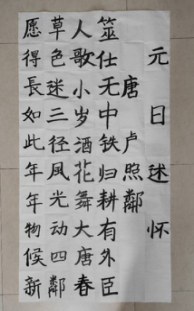 元日述怀
唐卢照鄰
筮仕无中铁归耕有外臣
人歌小岁酒花舞大唐春
草色迷三径风光动四鄰
愿得長如此年年物候新